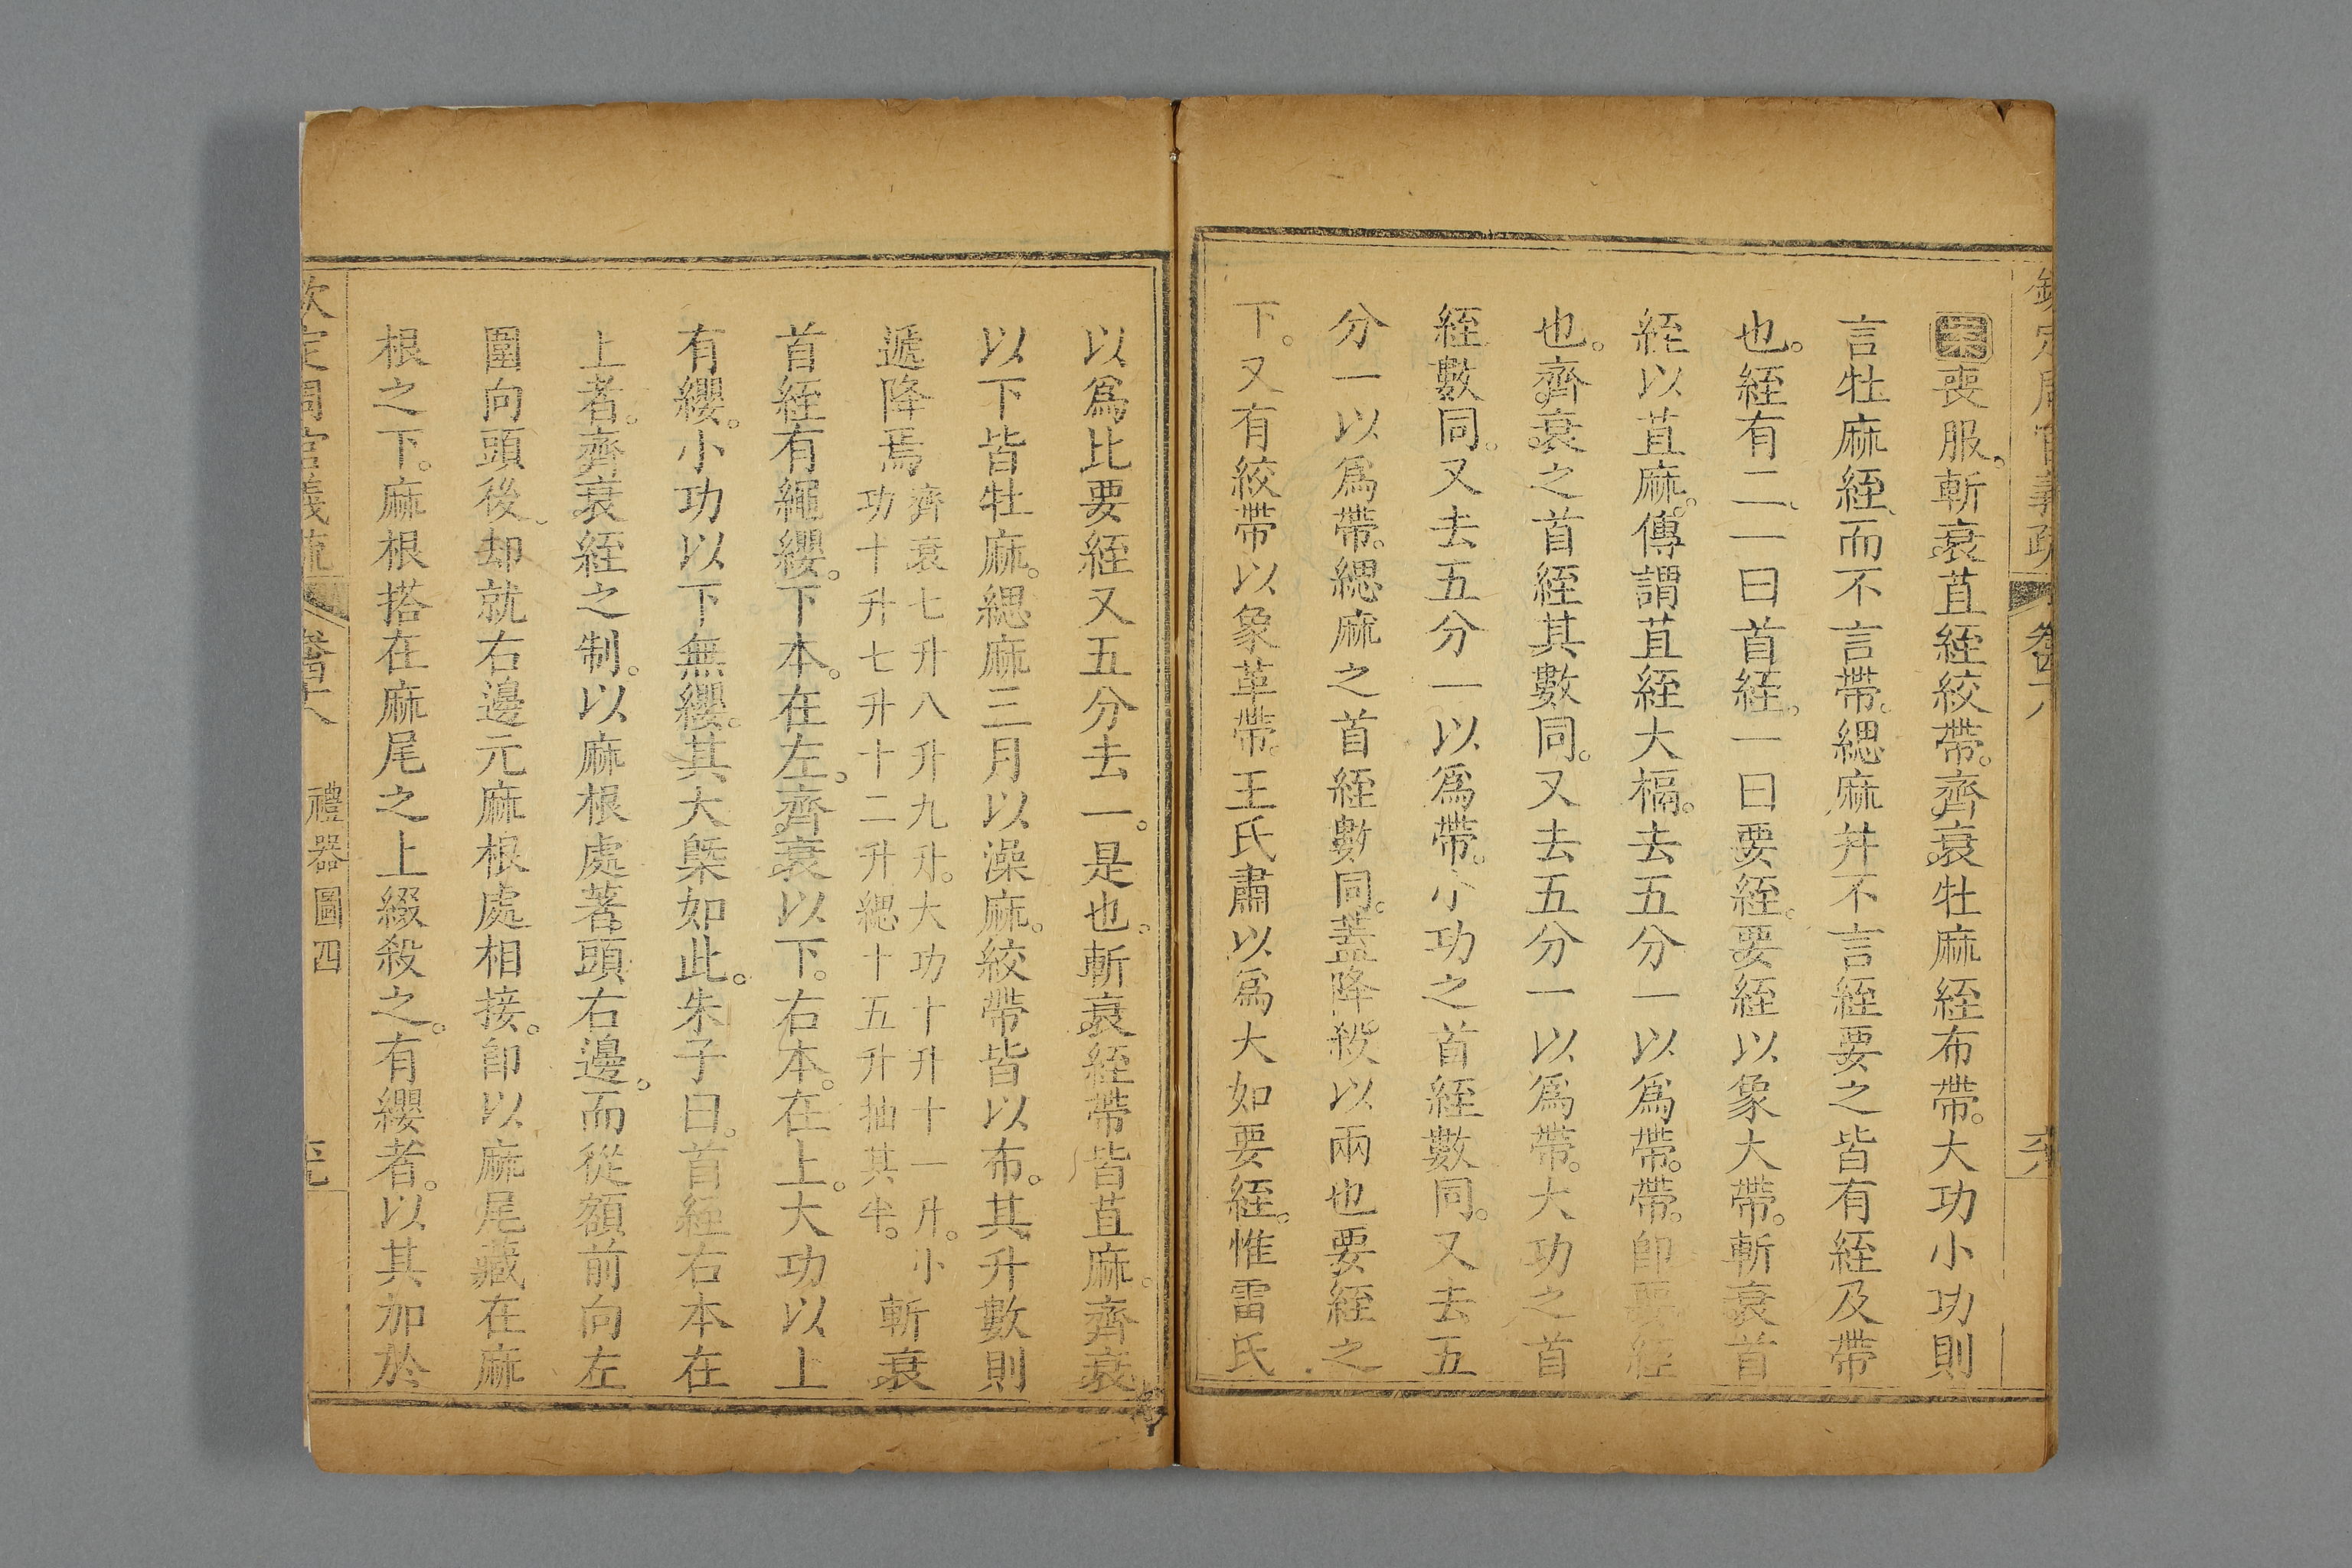 欽定周官義疏 卷四十八
案喪服。斬衰苴絰絞帶。齊衰牡麻絰布帶。大功小功則
言牡麻絰、而不言帶。緦麻并不言絰要之皆有絰及帶
也。絰有二、一曰首絰。一曰要絰。要絰以象大帶。斬衰首
絰以苴麻。傳謂苴絰大搹。去五分一以爲帶。帶。卽要絰
也。齊衰之首絰其數同。又去五分一以爲帶。大功之首
絰數同。又去五分一以爲帶。小功之首絰數同。又去五
分一以爲帶。緦麻之首絰數同。蓋降殺以兩也要絰之
下。又有絞帶以象革帶。王氏肅以爲大如要絰。惟雷氏
以爲比要絰又五分去一。是也。斬衰絰帶皆苴麻。齊衰
以下皆牡麻。緦麻三月以澡麻。絞帶皆以布。其升數則
遞降焉 齊衰七升八升九升。大功十升十一升。小功十升七升十二升緦十五升抽其半。 斬衰
首絰有繩纓。下本。在左。齊衰以下。右本。在上。大功以上
有纓。小功以下無纓。其大槩如此。朱子曰。首絰右本在
上者。齊衰絰之制。以麻根處著頭右邊。而從額前向左
圍向頭後。却就右邊元麻根處相接。卽以麻尾藏在麻
根之下。麻根搭在麻尾之上綴殺之。有纓者。以其加於
欽定周官義疏 禮器圖四